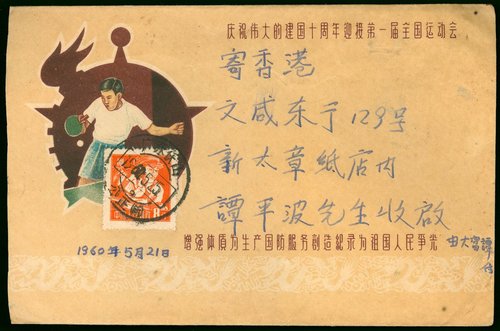 庆祝伟大的建国十周年迎接第一届全国运动会
寄香港
文咸东亍129号
新太章紙店内
譚平波先生收啟
增强体质为生产国防服务创造纪录为祖国人民争光
1960年5月21日
8